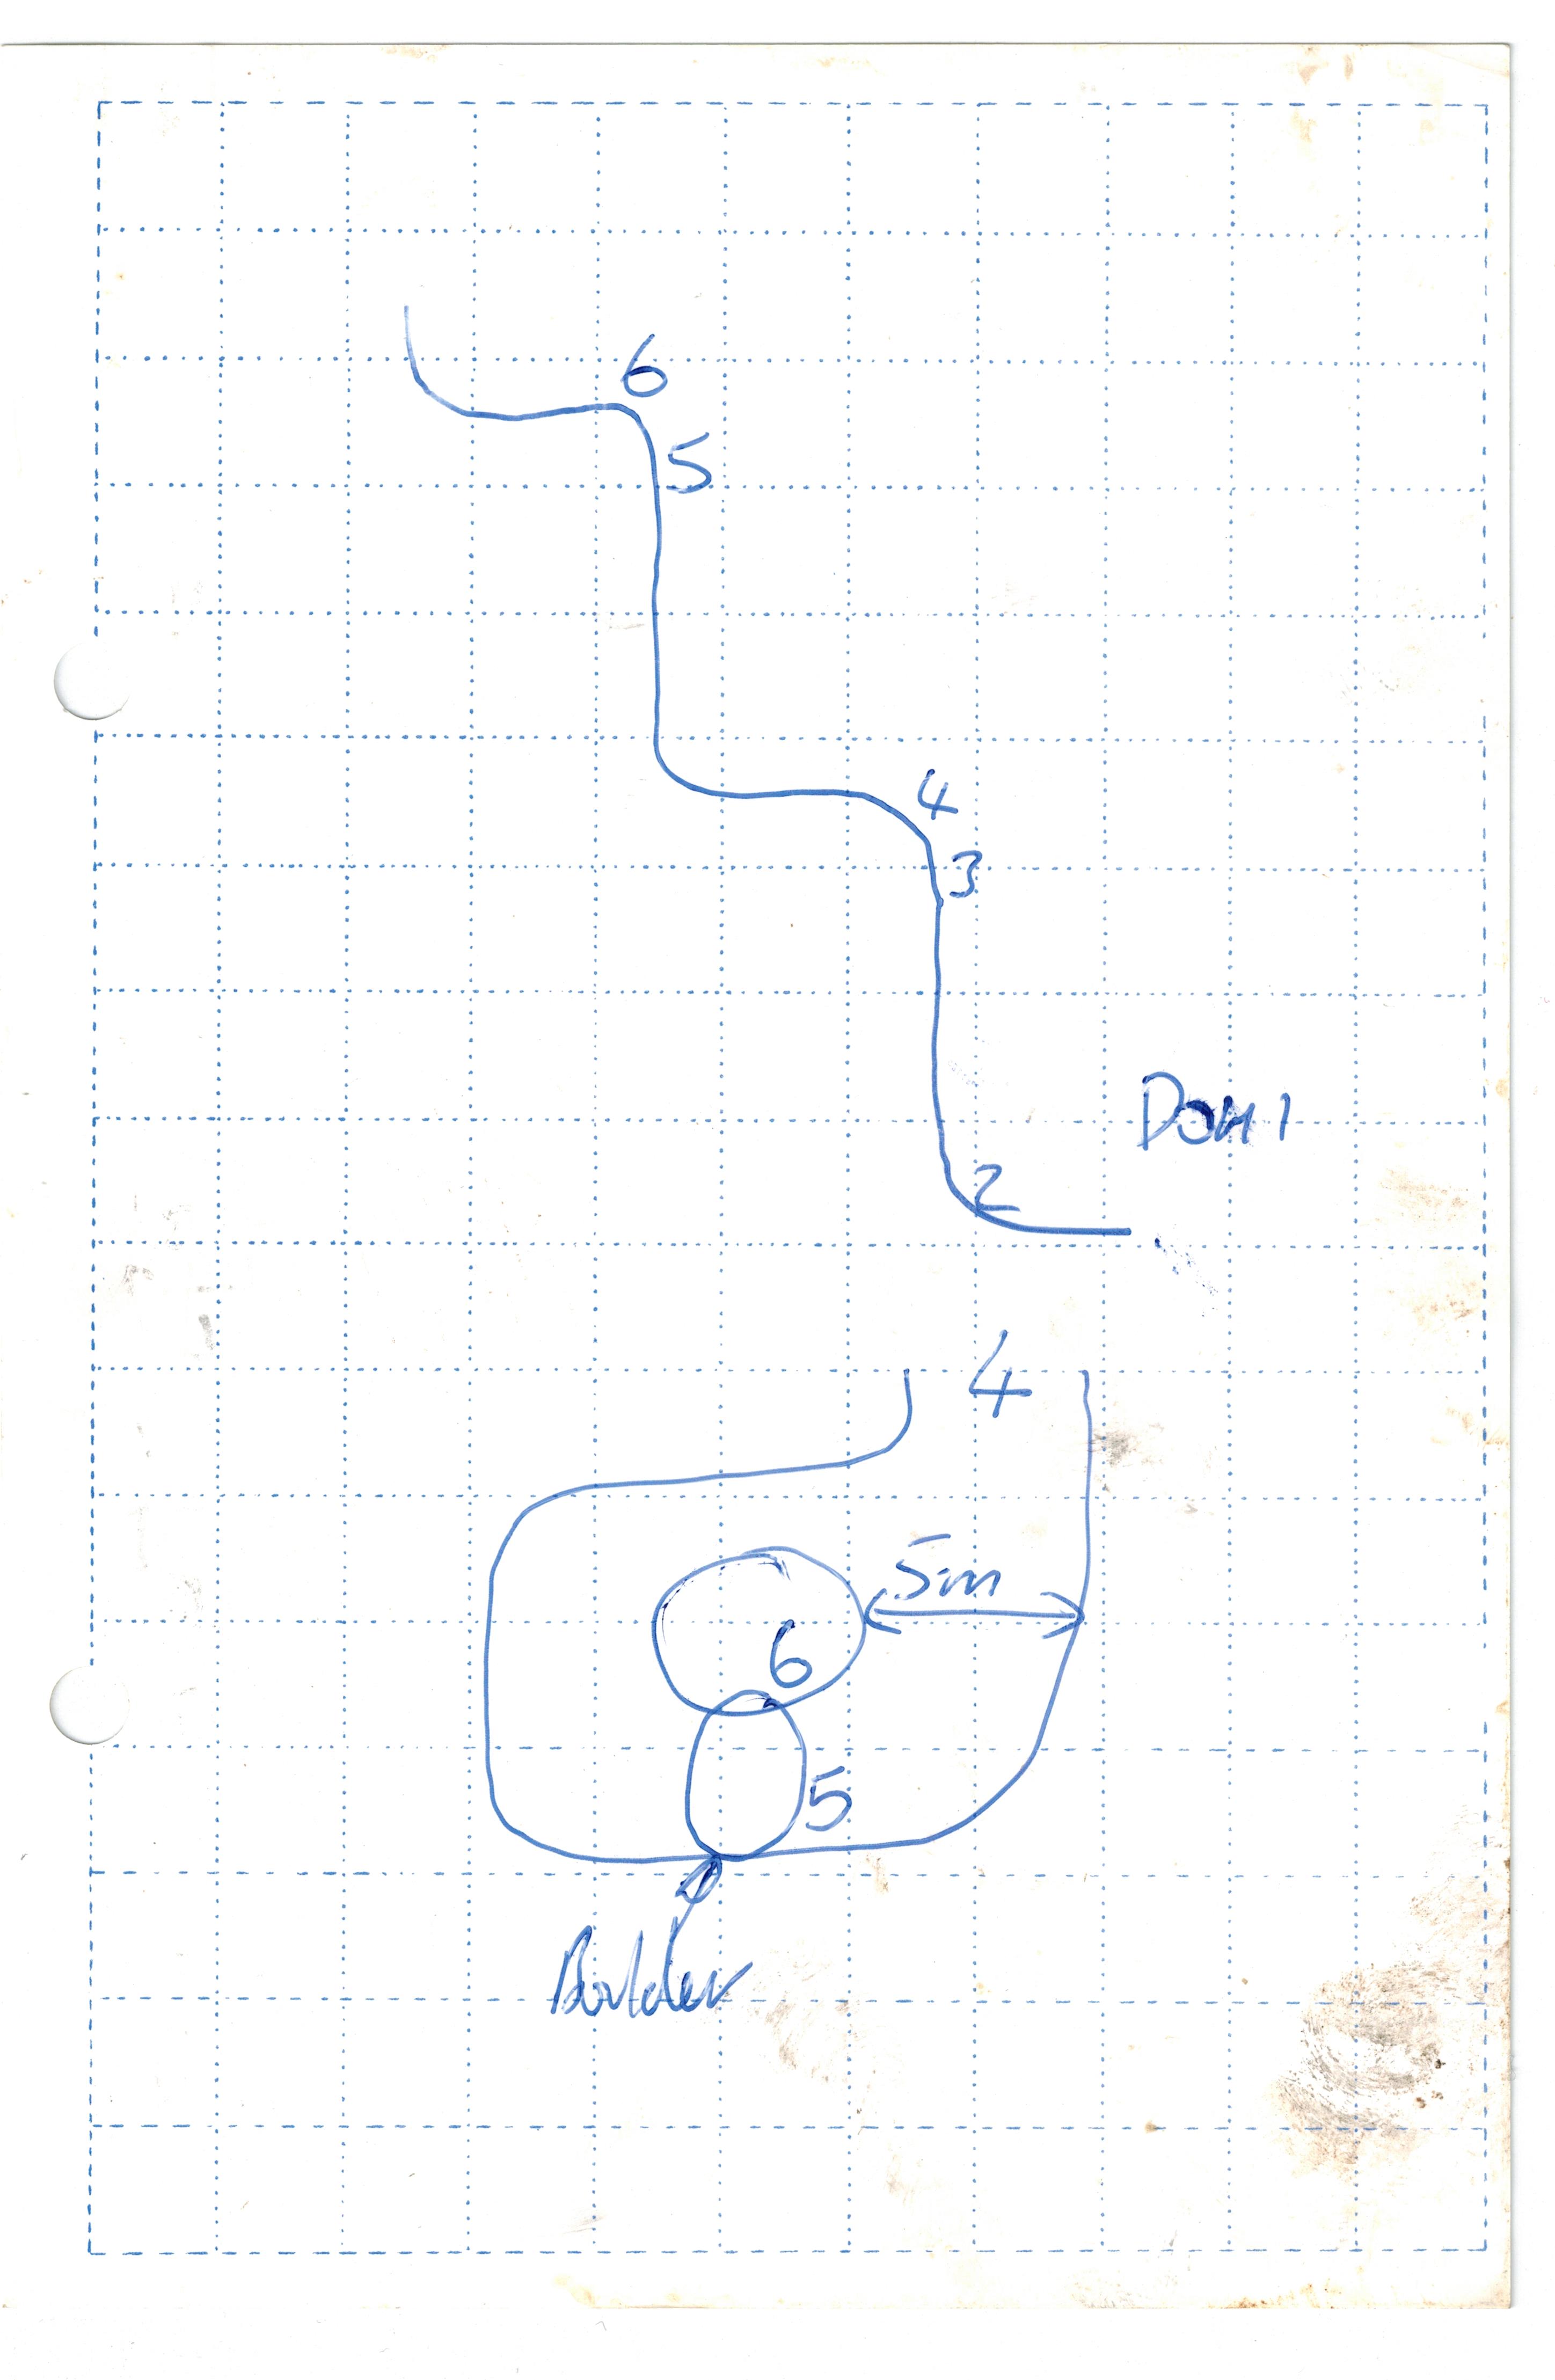 6
5
4
3
2
4
5m
6
5
Boulder